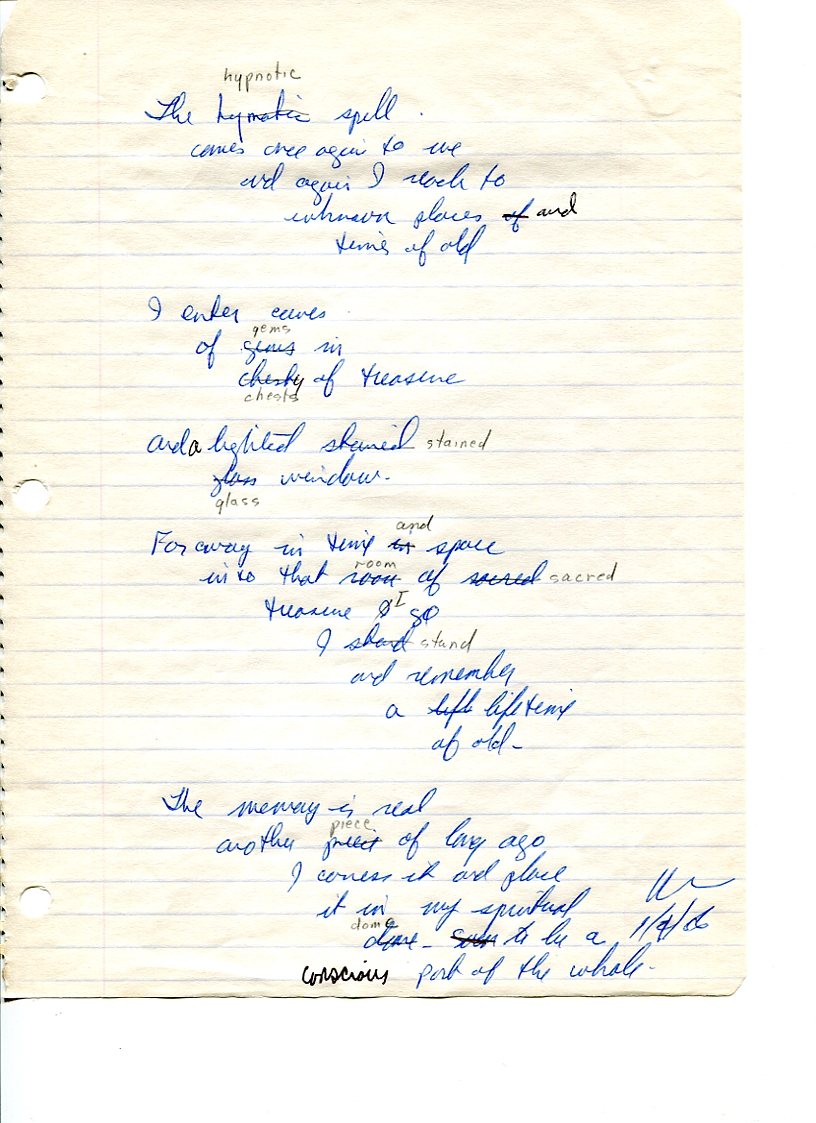 hypnotic
The hymatic spell.
comes once again to me
and again I reach to
unknown places of and
times of old
I enter caves
gems
of gems in
chests of treasure
chests
and a lighted stained stained
glass window.
glass
and
Far away in time in space
room
into that room of sacred sacred
treasure I go
I stand stand
and remember
a left lifetime
of old-
The memory is real
piece
another piece of long ago
I caress it and place
it in my spiritual
dome
dome - soon to be a 1/4/06
conscious part of the whole.